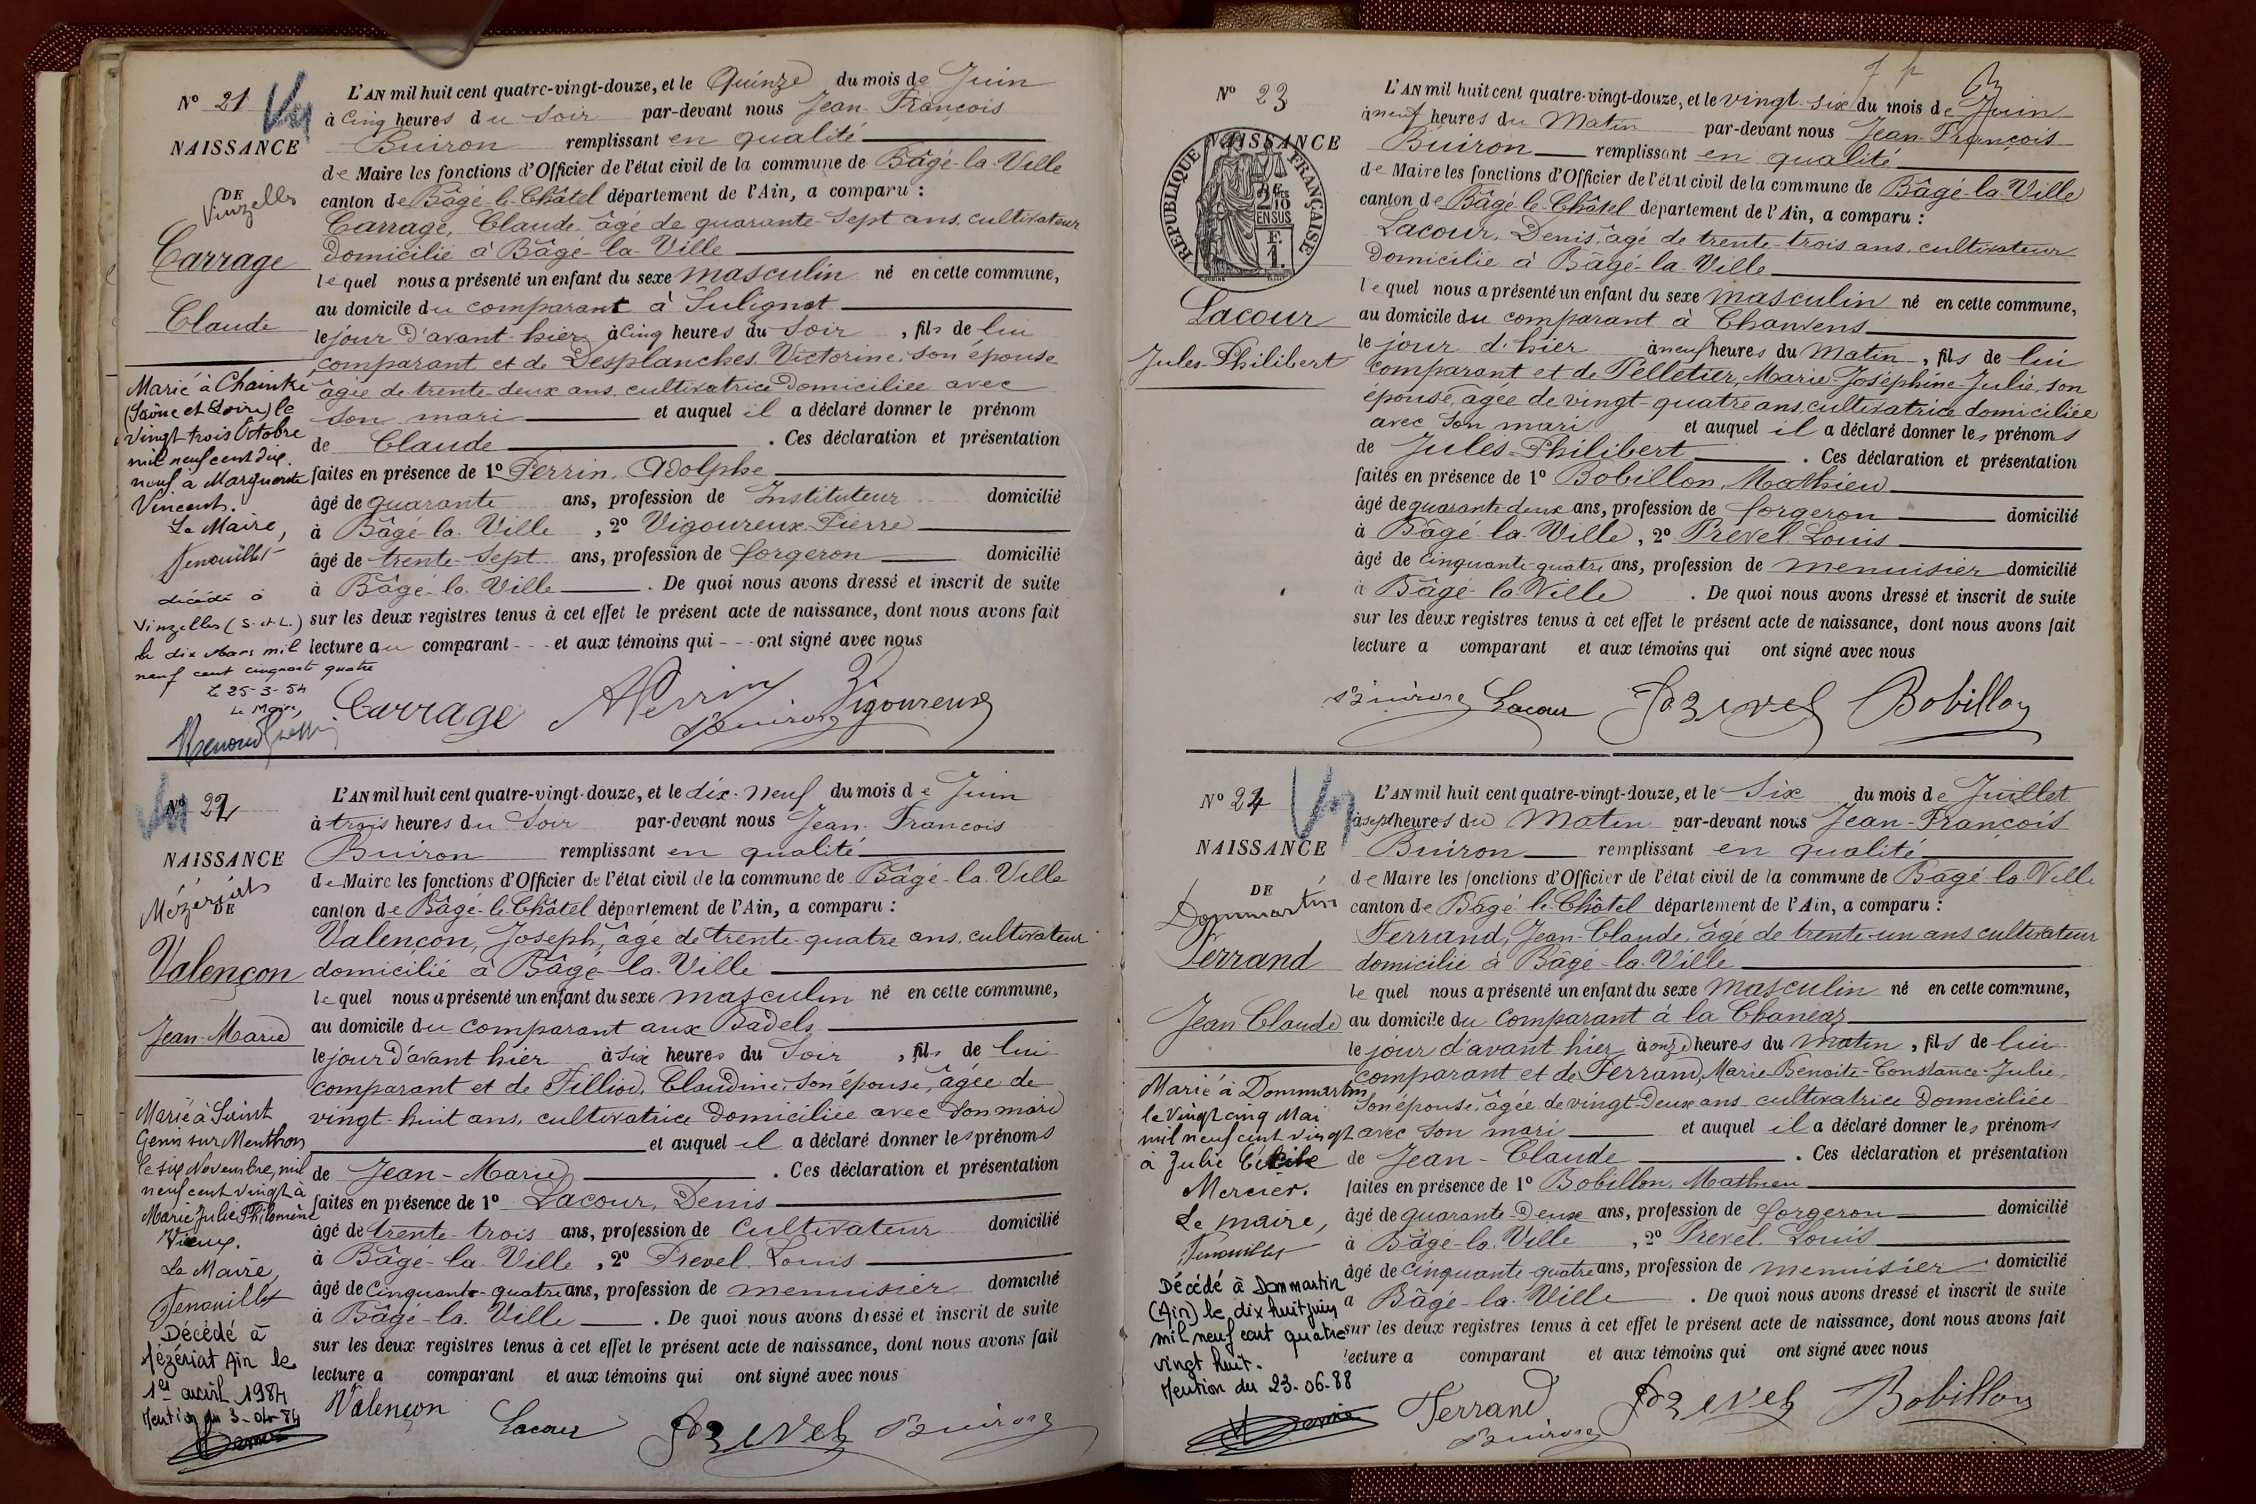 Nº 21
NAISSANCE
DE
Vinzelles
Carrage
Claude
L'AN mil huit cent quatre-vingt-douze, et le Quinze du mois de Juin
à Cinq heures du Soir par-devant nous Jean-François
Buiron remplissant en qualité
de Maire les fonctions d'Officier de l'état civil de la commune de Bâgé-la-Ville
canton de Bâgé-le-Châtel département de l'Ain, a comparu :
Carrage, Claude, âgé de quarante-sept ans, cultivateur
domicilié à Bâgé-la-Ville
lequel nous a présenté un enfant du sexe masculin né en cette commune,
au domicile du comparant à Sulignat
le jour d'avant-hier à Cinq heures du Soir, fils de lui
comparant et de Desplanches Victorine, son épouse
âgée de trente-deux ans, cultivatrice domiciliée avec
son mari et auquel il a déclaré donner le prénom
de Claude. Ces déclaration et présentation
faites en présence de 1º Perrin, Adolphe
âgé de quarante ans, profession de Instituteur domicilié
à Bâgé-la-Ville, 2º Vigoureux Pierre
âgé de trente-sept ans, profession de forgeron domicilié
à Bâgé-la-Ville. De quoi nous avons dressé et inscrit de suite
sur les deux registres tenus à cet effet le présent acte de naissance, dont nous avons fait
lecture au comparant et aux témoins qui ont signé avec nous
Carrage APerrin Vigoureux
Buiron
Marié à Chaintré
(Saône et Loire) le
vingt trois Octobre
mil neuf cent dix
neuf à Marguerite
Vincent.
Le Maire,
Fenouillet
décédé à
Vinzelles (S.-et-L.)
le dix Mars mil
neuf cent cinquante quatre
Le 25-3-54
Le Maire,
Nº 22
NAISSANCE
Mézériat
DE
Valençon
Jean-Marie
L'AN mil huit cent quatre-vingt-douze, et le dix-neuf du mois de Juin
à trois heures du Soir par-devant nous Jean-François
Buiron remplissant en qualité
de Maire les fonctions d'Officier de l'état civil de la commune de Bâgé-la-Ville
canton de Bâgé-le-Châtel département de l'Ain, a comparu :
Valençon, Joseph, âgé de trente-quatre ans, cultivateur
domicilié à Bâgé-la-Ville
lequel nous a présenté un enfant du sexe masculin né en cette commune,
au domicile du comparant aux Badels
le jour d'avant hier à six heures du Soir, fils de lui
comparant et de Tilliod, Claudine, son épouse, âgée de
vingt-huit ans, cultivatrice domiciliée avec son mari
et auquel il a déclaré donner les prénoms
de Jean-Marie. Ces déclaration et présentation
faites en présence de 1º Lacour, Denis
âgé de trente-trois ans, profession de Cultivateur domicilié
à Bâgé-la-Ville, 2º Prevel Louis
âgé de Cinquante-quatre ans, profession de menuisier domicilié
à Bâgé-la-Ville. De quoi nous avons dressé et inscrit de suite
sur les deux registres tenus à cet effet le présent acte de naissance, dont nous avons fait
lecture a comparant et aux témoins qui ont signé avec nous
Valençon Lacour Prevel Buiron
Marié à Saint
Genis sur Menthon
le six Novembre, mil
neuf cent vingt à
Marie Julie Philomène
Vieux.
Le Maire,
Fenouillet
Décédé à
Mézériat Ain le
1er avril 1984
Mention du 3-04-84
Nº 23
NAISSANCE
REPUBLIQUE FRANÇAISE
2/10
EN SUS
F.
1.
Lacour
Jules-Philibert
L'AN mil huit cent quatre-vingt-douze, et le vingt-six du mois de Juin
à neuf heures du Matin par-devant nous Jean-François
Buiron remplissant en qualité
de Maire les fonctions d'Officier de l'état civil de la commune de Bâgé-la-Ville
canton de Bâgé-le-Châtel département de l'Ain, a comparu :
Lacour, Denis, âgé de trente-trois ans, cultivateur
domicilié à Bâgé-la-Ville
lequel nous a présenté un enfant du sexe masculin né en cette commune,
au domicile du comparant à Chanvens
le jour d'hier à neuf heures du Matin, fils de lui
comparant et de Pelletier, Marie-Joséphine-Julie, son
épouse, âgée de vingt-quatre ans, cultivatrice domiciliée
avec son mari et auquel il a déclaré donner les prénoms
de Jules-Philibert. Ces déclaration et présentation
faites en présence de 1º Bobillon, Mathieu
âgé de quarante deux ans, profession de forgeron domicilié
à Bâgé-la-Ville, 2º Prevel Louis
âgé de Cinquante-quatre ans, profession de menuisier domicilié
à Bâgé-la-Ville. De quoi nous avons dressé et inscrit de suite
sur les deux registres tenus à cet effet le présent acte de naissance, dont nous avons fait
lecture a comparant et aux témoins qui ont signé avec nous
Buiron Lacour Prevel Bobillon
Nº 24
NAISSANCE
DE
Dommartin
Ferrand
Jean Claude
L'AN mil huit cent quatre-vingt-douze, et le Six du mois de Juillet
à sept heures du Matin par-devant nous Jean-François
Buiron remplissant en qualité
de Maire les fonctions d'Officier de l'état civil de la commune de Bâgé-la-Ville
canton de Bâgé-le-Châtel département de l'Ain, a comparu :
Ferrand, Jean-Claude, âgé de trente-un ans cultivateur
domicilié à Bâgé-la-Ville
lequel nous a présenté un enfant du sexe masculin né en cette commune,
au domicile du comparant à la Chanéaz
le jour d'avant hier à onze heures du matin, fils de lui
comparant et de Ferrand, Marie-Benoite-Constance-Julie,
son épouse, âgée de vingt-deux ans cultivatrice domiciliée
avec son mari et auquel il a déclaré donner les prénoms
de Jean-Claude. Ces déclaration et présentation
faites en présence de 1º Bobillon, Mathieu
âgé de quarante-deux ans, profession de forgeron domicilié
à Bâgé-la-Ville, 2º Prevel Louis
âgé de cinquante-quatre ans, profession de menuisier domicilié
à Bâgé-la-Ville. De quoi nous avons dressé et inscrit de suite
sur les deux registres tenus à cet effet le présent acte de naissance, dont nous avons fait
lecture a comparant et aux témoins qui ont signé avec nous
Ferrand Prevel Bobillon
Buiron
Marié à Dommartin
le vingt cinq Mai
mil neuf cent vingt
à Julie Cécile
Mercier.
Le maire,
Fenouillet
Décédé à Dommartin
(Ain) le dix huit juin
mil neuf cent quatre
vingt huit.
Mention du 23-06-88